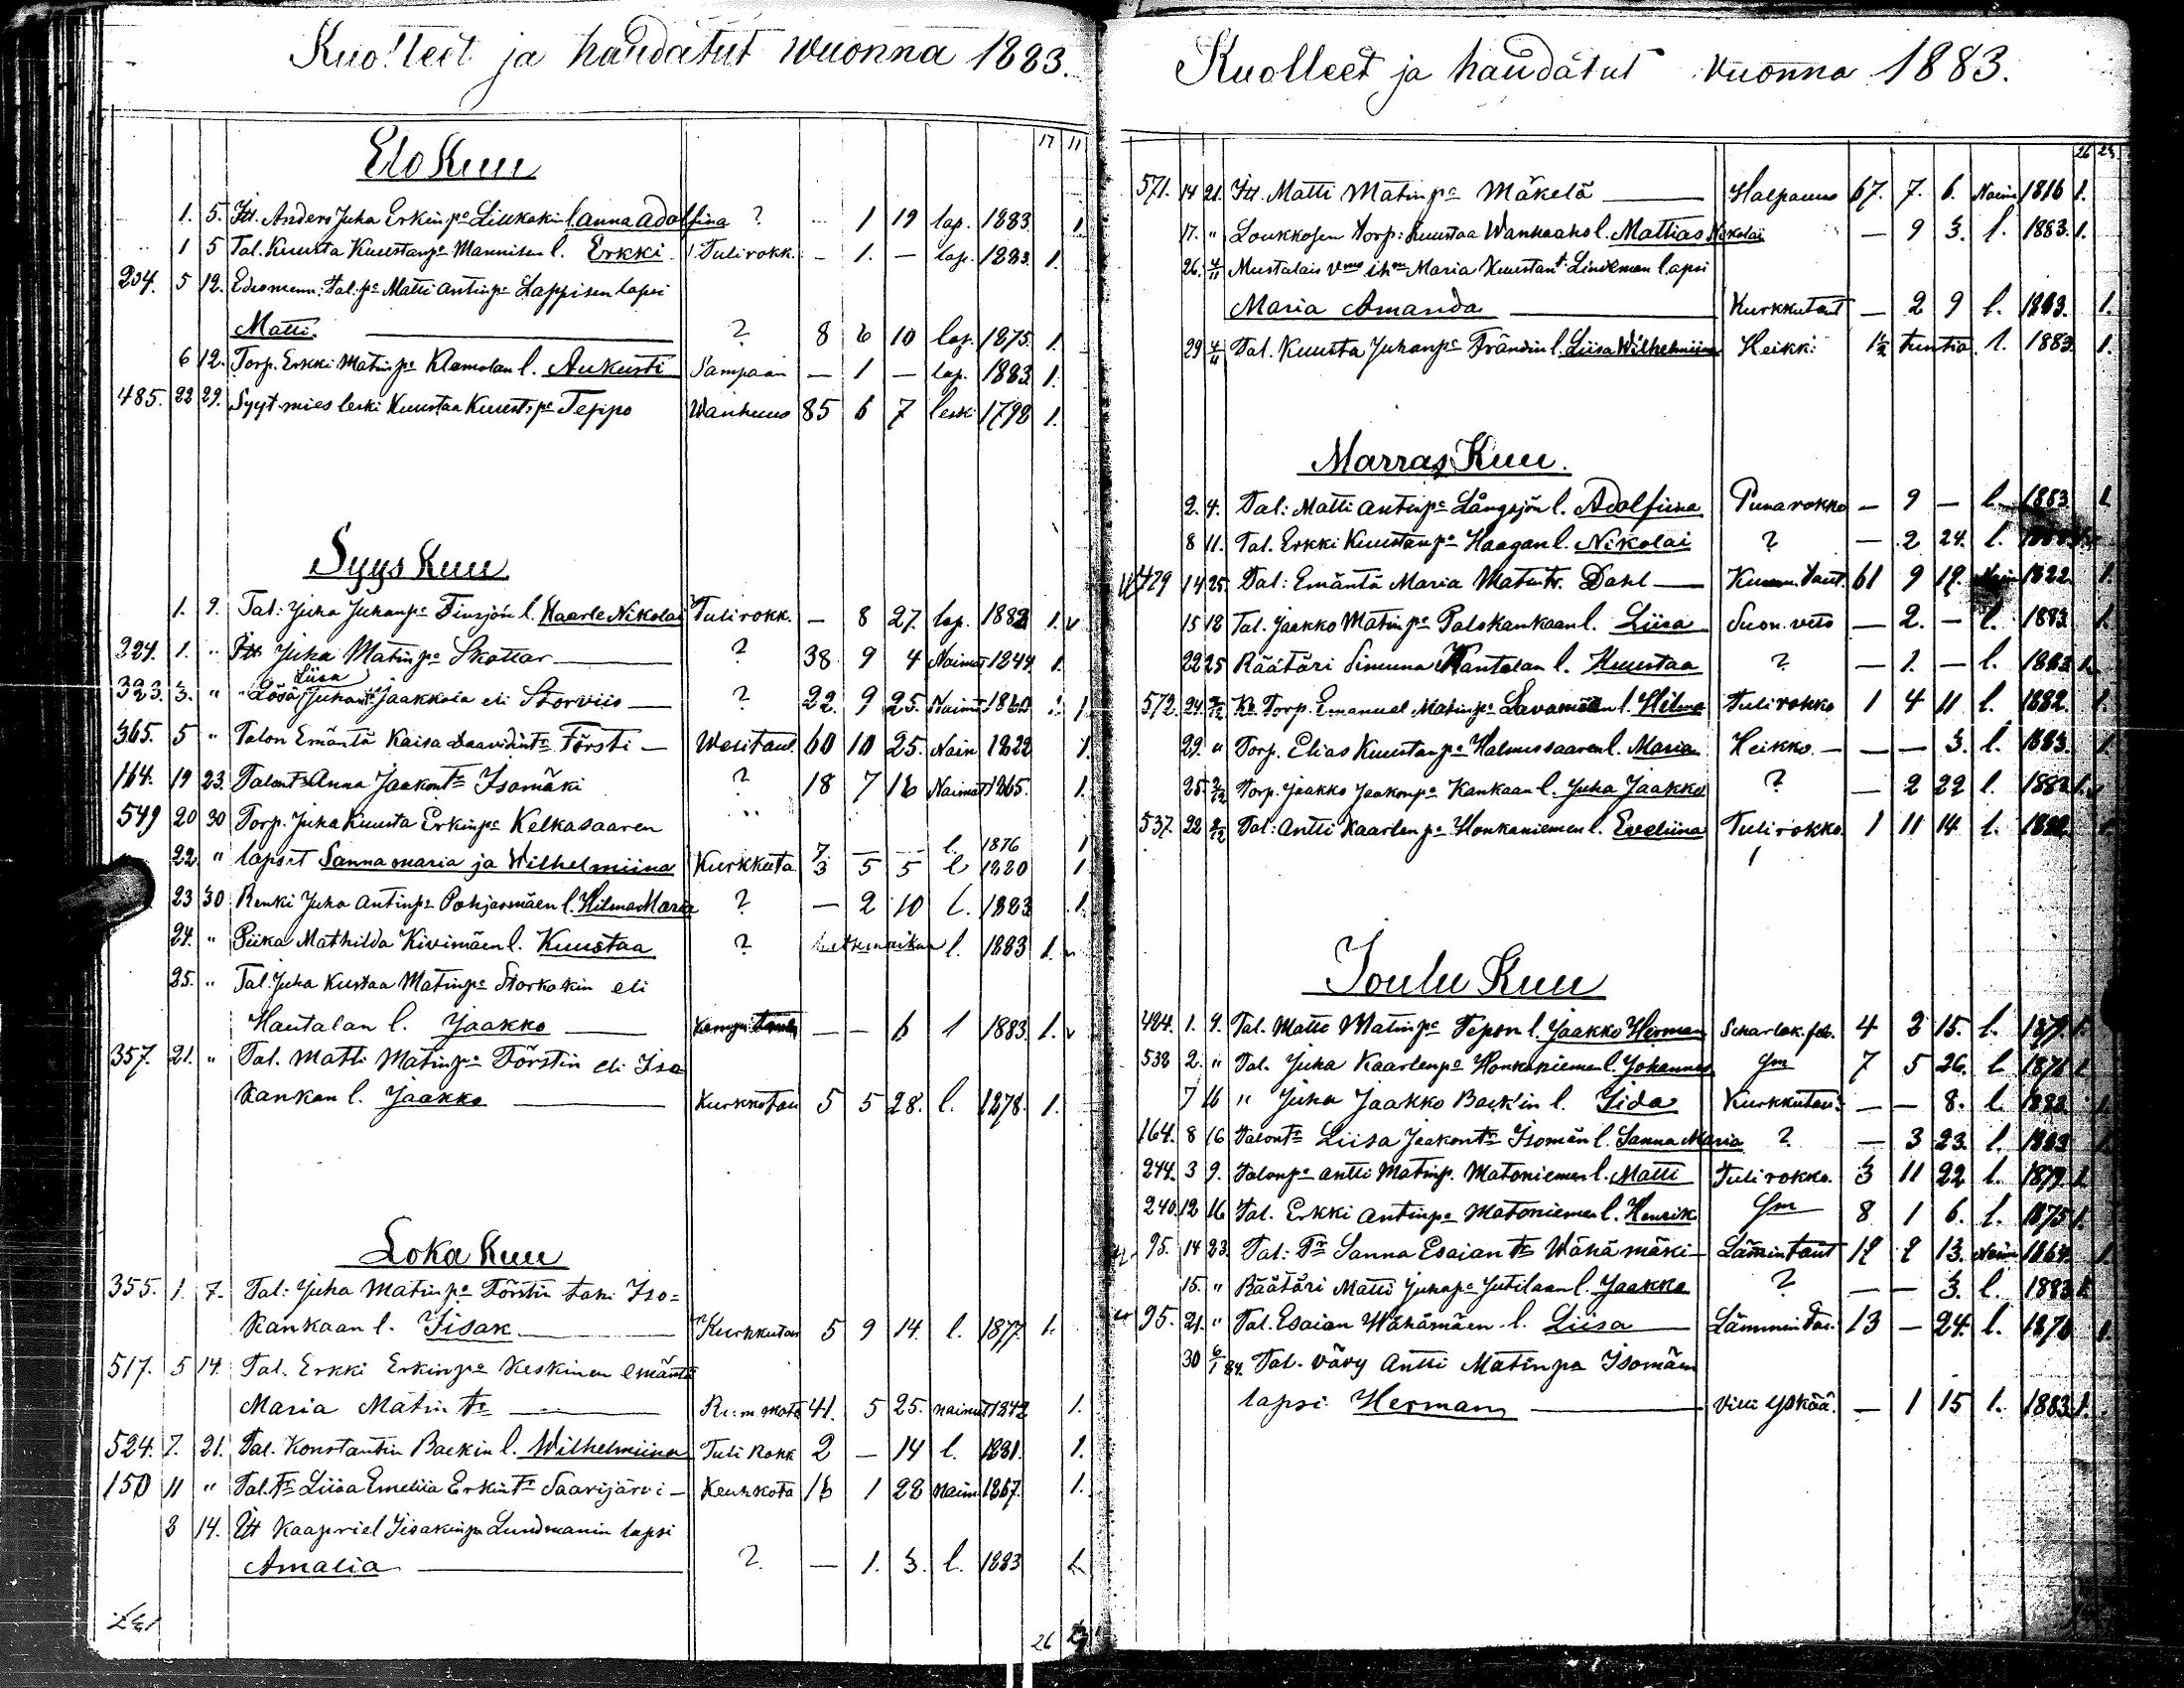 Kuolleet ja haudatut wuonna 1883.
17 11
Elo Kuu
1. 5. Itt. Anders Juha Erkinp. Liukokin l. Anna Adolfina ? 1 19 lap. 1883 1.
1 5 Tal. Kuusta Kuustanp. Mannisen l. Erkki Tulirokk. – 1. – lap. 1883. 1.
234. 5 12. Edesmenn. Tal. p. Matti Antinp. Lappisen lapsi
Matti. ? 8 6 10 lap. 1875. 1.
6 12. Torp. Erkki Matinp. Klamolan l. Aukusti – 1 – lap. 1883 1.
485. 22 29. Syyt. mies leski Kuustaa Kuust. p. Teppo Wanhuus 85 6 7 leski 1798 1.
Syys Kuu
1. 9. Tal: Juha Juhanp. Finsjön l. Kaarle Nikolai Tulirokk. – 8 27. lap. 1882 1.
324. 1. " Itt Juha Matinp. Skattar ? 38 9 4 Naimat 1844. 1.
Liisa
323. 3. " Juhant. Jaakkola eli Storviis ? 22. 9 25. Naimt 1860 1.
365. 5 " Talon Emäntä Kaisa Daavidint. Försti – Wesitaut. 60 10 25. Nain 1822 1.
164. 19 23. Talont. Anna Jaakont. Isomäki ? 18 7 16 Naimat 1865. 1.
549 20 30 Torp. Juha Kuusta Erkinp. Kelkasaaren
7 – – l. 1876 1
22 " lapset Sanna Maria ja Wilhelmiina Kurkkuta 3 5 5 l 1880 1
23 30 Renki Juha Antinp. Pohjasmäen l. Hilma Maria ? – 2 10 l. 1883 1.
24. " Piika Mathilda Kivimäen l. Kuustaa ? l. 1883 1.
25. " Tal. Juha Kustaa Matinp. Storkokin eli
Hautalan l. Jaakko – – 6 1 1883. 1.
357. 21. " Tal. Matti Matinp. Förstin eli Iso
kankan l. Jaakko Kurkkotau 5 5 28. l. 1878. 1.
Loka Kuu
355. 1. 7. Tal: Juha Matinp. Förstin Iso=
kankaan l. Iisak Kurkkutau 5 9 14. l. 1877. 1.
517. 5 14. Tal. Erkki Erkinp. Keskinen emäntä
Maria Matin t. 41. 5 25. nainut 1842 1.
524. 7. 21. Tal. Konstantin Backin l. Wilhelmiina Tuli Rokk 2 – 14 l. 1881. 1.
150 11 " Tal. t. Liisa Emeliia Erkint. Saarijärvi – Keuhkota 16 1 28 naim. 1867. 1.
8 14. Itt Kaapriel Iisakinp. Lundmanin lapsi
Amalia ? – 1. 3. l. 1883 1.
26
Kuolleet ja haudatut vuonna 1883.
26 23
571. 14 21. Itt. Matti Matinp. Mäkelä Halpaus 67. 7. 6. Nain 1816 1.
17. " Loukkosen Torp: Kuustaa Wanhaaho l. Mattias Nikolai – 9 3. l. 1883. 1.
26. 4/11 Mustalais Maria Kuustant. Lindeman lapsi
Maria Amanda Kurkkutaut – 2 9 l. 1883. 1.
29 4/11 Tal. Kuusta Juhanp. Frändin l. Liisa Wilhelmiina Heikk: 1½ tuntia. l. 1883. 1.
Marras Kuu.
2. 4. Tal: Matti Antinp. Långsjön l. Adolfiina Punarokko – 9 – l. 1883 1
8 11. Tal. Erkki Kuustanp. Haagan l. Nikolai ? – 2 24. l.
429 14 25. Tal: Emäntä Maria Matint. Dahl 61 9 19. 1822. 1.
15 18 Tal. Jaakko Matinp. Palokankaan l. Liisa Suon. veto – 2. – l. 1883. 1.
22 25 Räätäri Simuna Kantolan l. Kuustaa ? – 1. – l. 1883 1.
572. 24. 2/12 Torp. Emanuel Matinp. Lavamäen l. Hilma Tulirokko 1 4 11 l. 1882. 1.
29. " Torp. Elias Kuustanp. Halmessaaren l. Maria Heikko. – – – 3. l. 1883. 1.
25. 2/12 Torp. Jaakko Jaakonp. Kankaan l. Juha Jaakko ? – 2 22 l. 1883 1.
537. 22 2/12 Tal: Antti Kaarlenp. Honkaniemen l. Eveliina Tulirokko. 1 11 14. l.
Joulu Kuu
424. 1. 9. Tal. Matti Matinp. Tepon l. Jaakko Herman Scharlak. feb. 4 2 15. l. 1879. 1.
538 2. " Tal. Juha Kaarlenp. Honkaniemen l. Johannes Sm 7 5 26. l. 1876 1.
7 16 " Juha Jaakko Back'in l. Iida Kurkkutau: – – 8. l. 1883. 1.
164. 8 16 Talont. Liisa Jaakont. Isomän l. Sanna Maria ? – 3 23. l. 1883 1.
244. 3 9. Talonp. Antti Matinp. Matoniemen l. Matti Tulirokko. 3 11 22 l. 1879. 1.
240. 12 16 Tal. Erkki Antinp. Matoniemen l. Henrik Sm 8 1 6. l. 1875 1.
95. 14 23. Tal: Tr Sanna Esaian t. Wähämäki – Lämmintaut 19 2 13. 1864. 1.
15. " Räätäri Matti Juhap. Jutilaan l. Jaakko ? – – 3. l. 1883 1.
95. 21. " Tal. Esaian Wähämäen l. Liisa Lämmin Tau. 13 – 24. l. 1870 1.
30 6/1 84. Tal. vävy Antti Matinpa Isomäen
lapsi Herman Villi yskää. – 1 15 l. 1883 1.